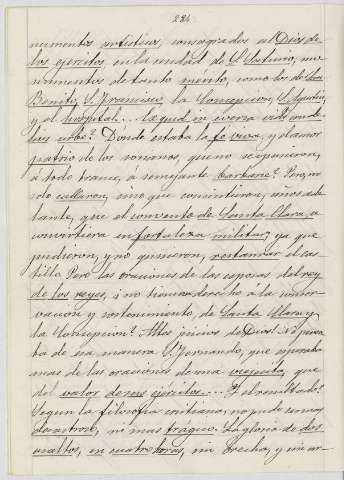 224
numentos artísticos, consagrados al Dios de
los ejércitos, en la ciudad de S. Saturio, mo-
numentos de tanto mérito, como los de San
Benito, S. Francisco, la Concepcion, S. Agustin
y el hospital...
bais urbe? Donde estaba la fe viva, y el amor
patrio de los sorianos, que no se opusieron,
á todo trance, á semejante barbarie? Pero, no
solo callaron, sino que consintieron, años ade-
lante, que el convento de Santa Clara, se
convirtiera en fortaleza militar, ya que
pudieron, y no quisieron, restaurar el cas-
tillo. Pero las oraciones de las esposas del rey
de los reyes, ¿no tienen derecho á la conser-
vacion y sostenimiento, de Santa Clara y
la Concepcion? Altos juicios de Dios! No pensa-
ba de esa manera S. Fernando, que esperaba
mas de las oraciones de una viejecita, que
del valor de sus ejércitos... Y el resultado?
Segun la filosofia cristiana, no pudo ser mas
desastroso, ni mas trágico. La gloria de dos
asaltos, en cuatro horas, sin brecha, y sin ar-